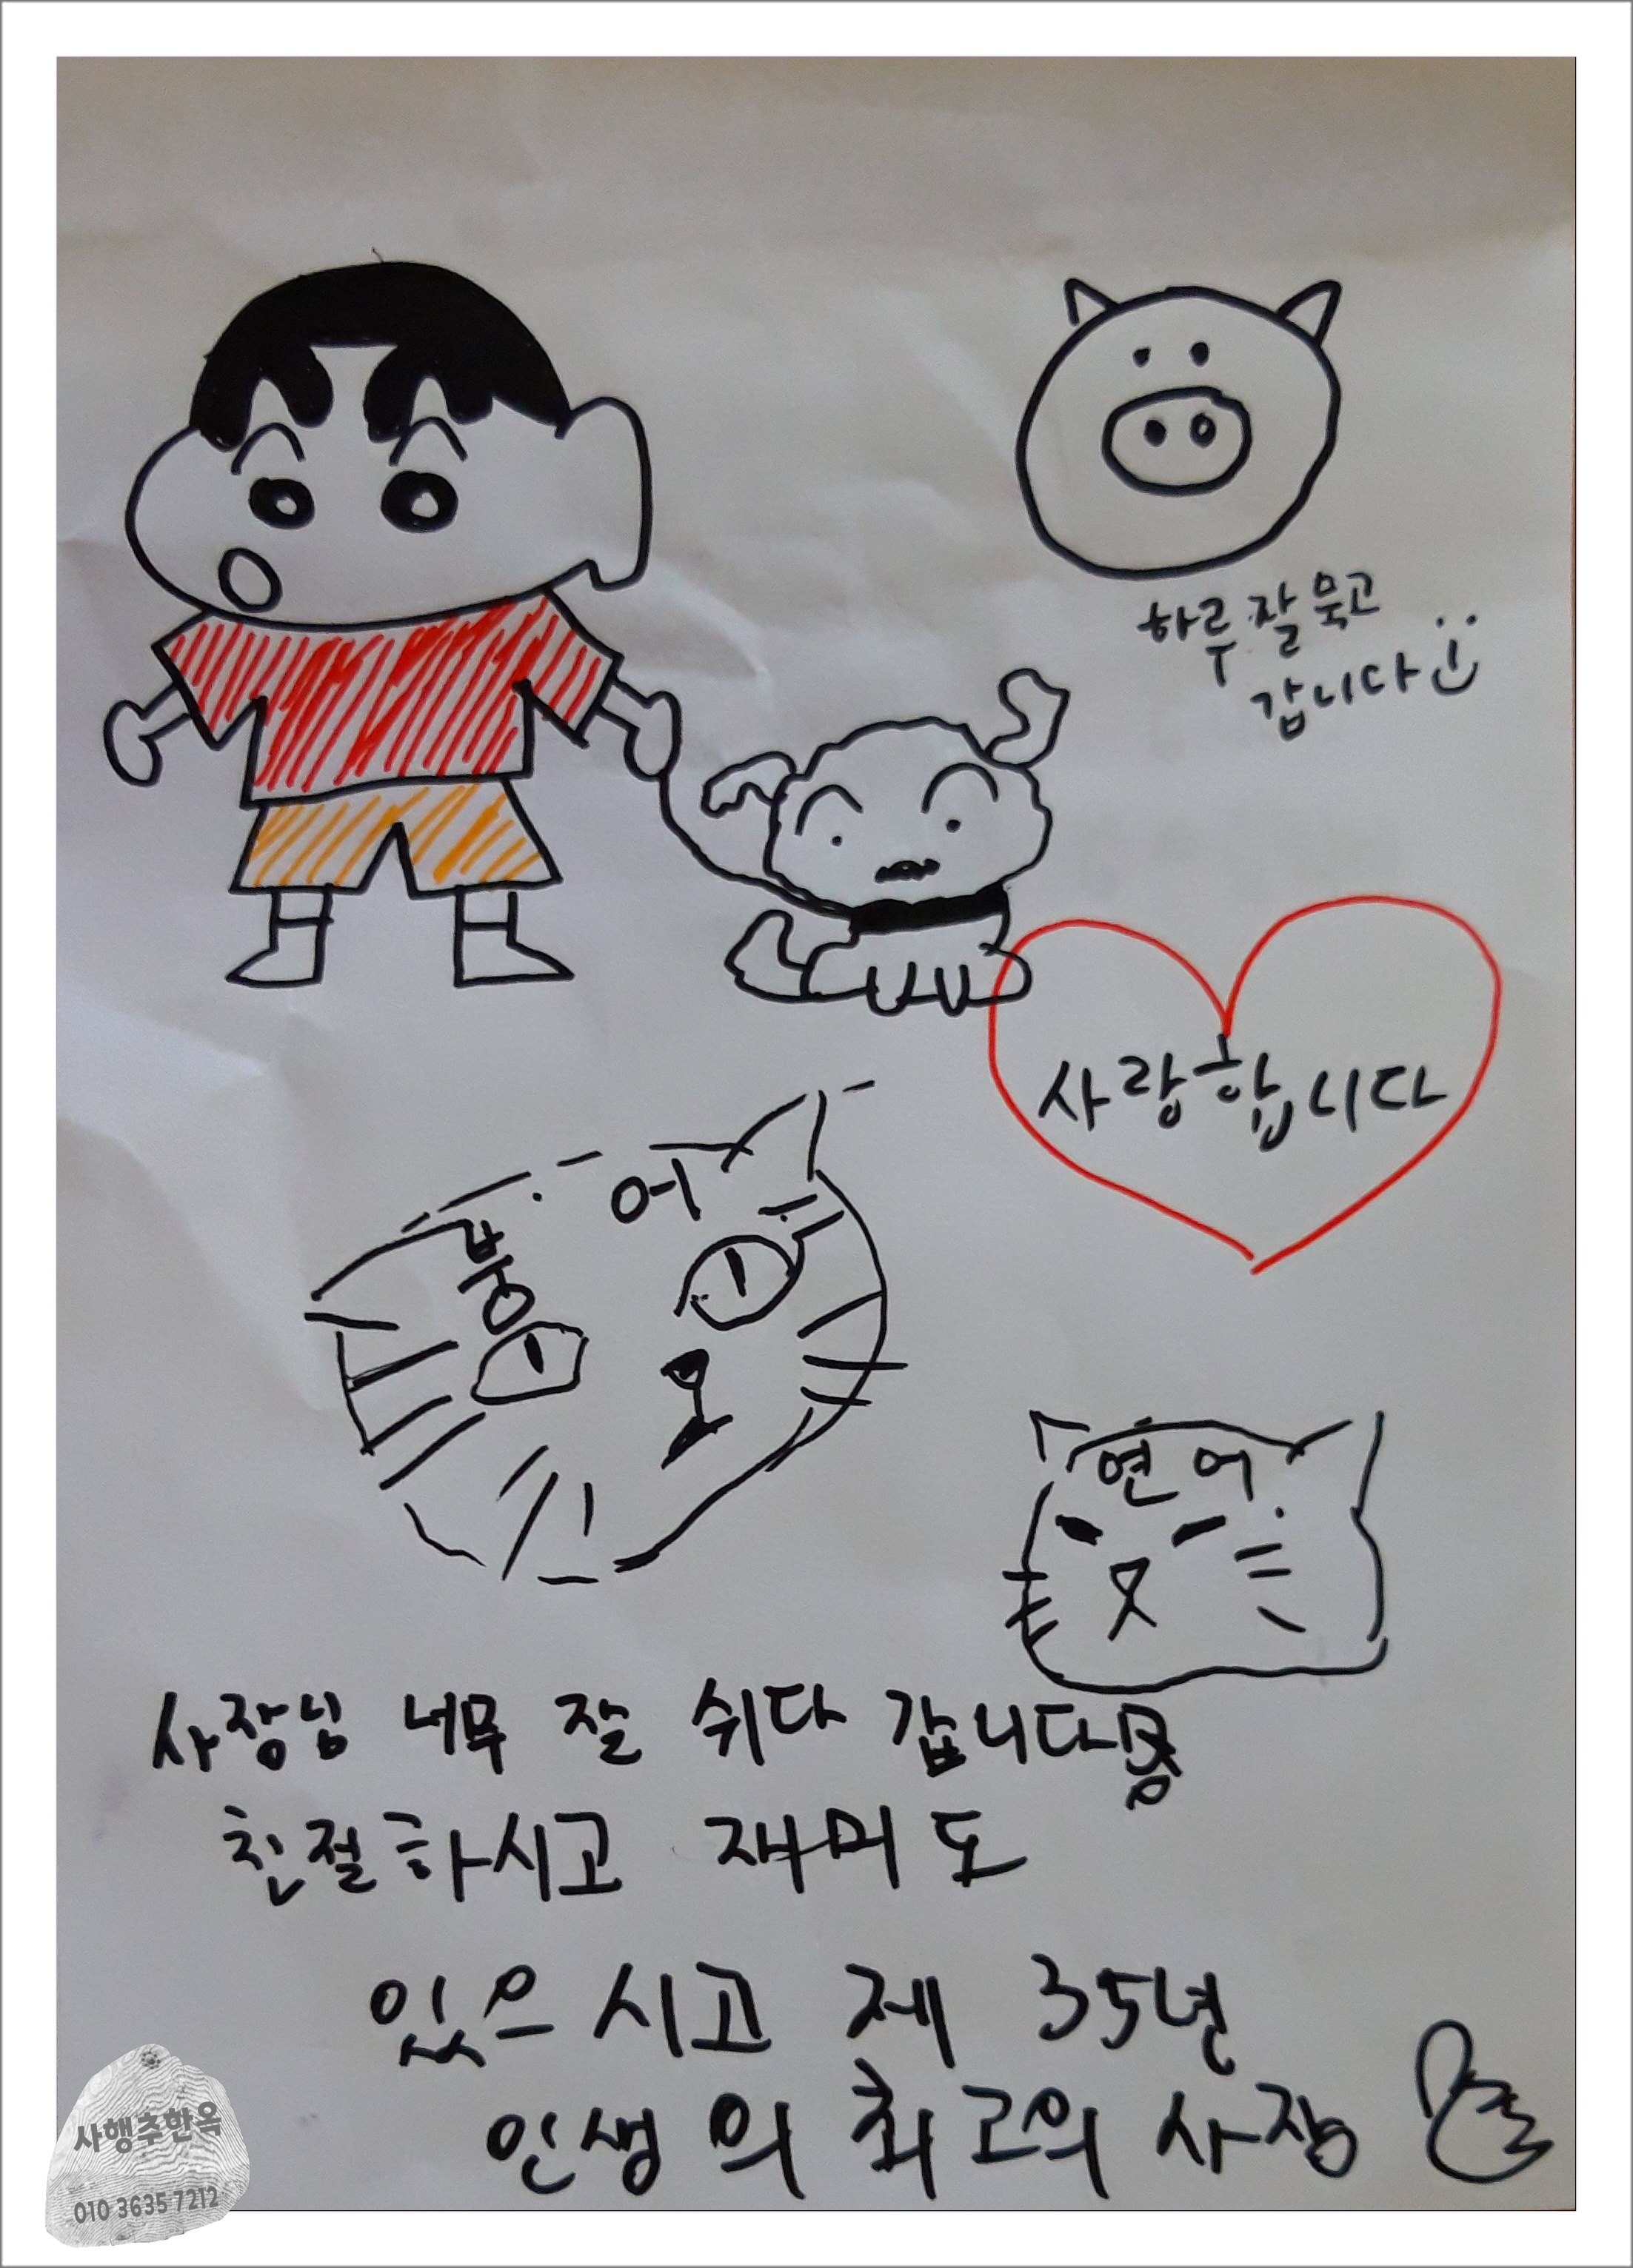 하루 잘 묵고
갑니다
사랑합니다
붕어
연어
사장님 너무 잘 쉬다 갑니다
친절하시고 재미도
있으시고 제 35년
인생의 최고의 사장
사행추한옥
010 3635 7212